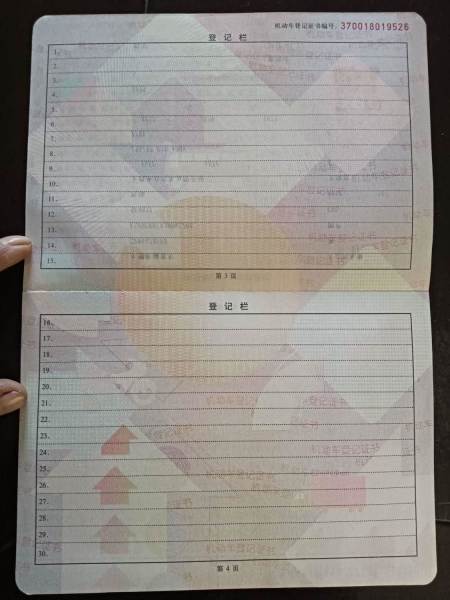 机动车登记证书编号：370018019526
登记栏
1.
2.
3.
4.
5.
6.
7.
8.
9.
10.
11.
12.
13.
14.
15.
第3页
登记栏
16.
17.
18.
19.
20.
21.
22.
23.
24.
25.
26.
27.
28.
29.
30.
第4页